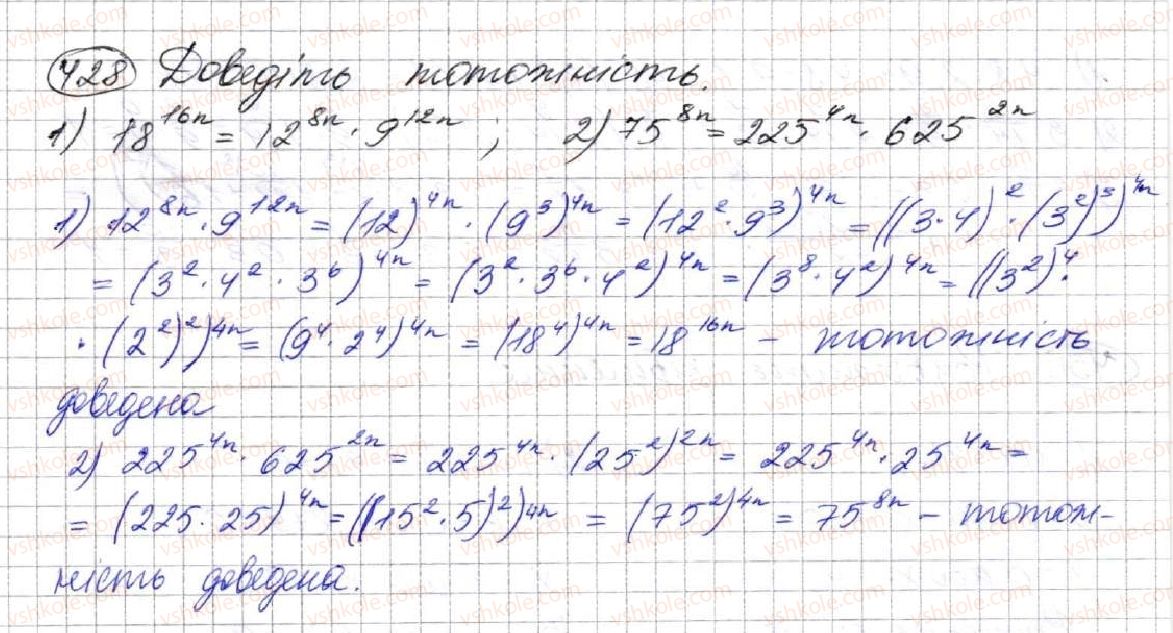 428 Доведіть тотожність.
1) 18^{16n} = 12^{8n} · 9^{12n} ; 2) 75^{8n} = 225^{4n} · 625^{2n}
1) 12^{8n} · 9^{12n} = (12)^{4n} · (9^3)^{4n} = (12^2 · 9^3)^{4n} = ((3·4)^2 · (3^2)^3)^{4n}
= (3^2 · 4^2 · 3^6)^{4n} = (3^2 · 3^6 · 4^2)^{4n} = (3^8 · 4^2)^{4n} = ((3^2)^4 ·
· (2^2)^2)^{4n} = (9^4 · 2^4)^{4n} = (18^4)^{4n} = 18^{16n} – тотожність
доведена
2) 225^{4n} · 625^{2n} = 225^{4n} · (25^2)^{2n} = 225^{4n} · 25^{4n} =
= (225 · 25)^{4n} = ((15^2 · 5)^2)^{4n} = (75^2)^{4n} = 75^{8n} – тотож-
ність доведена.